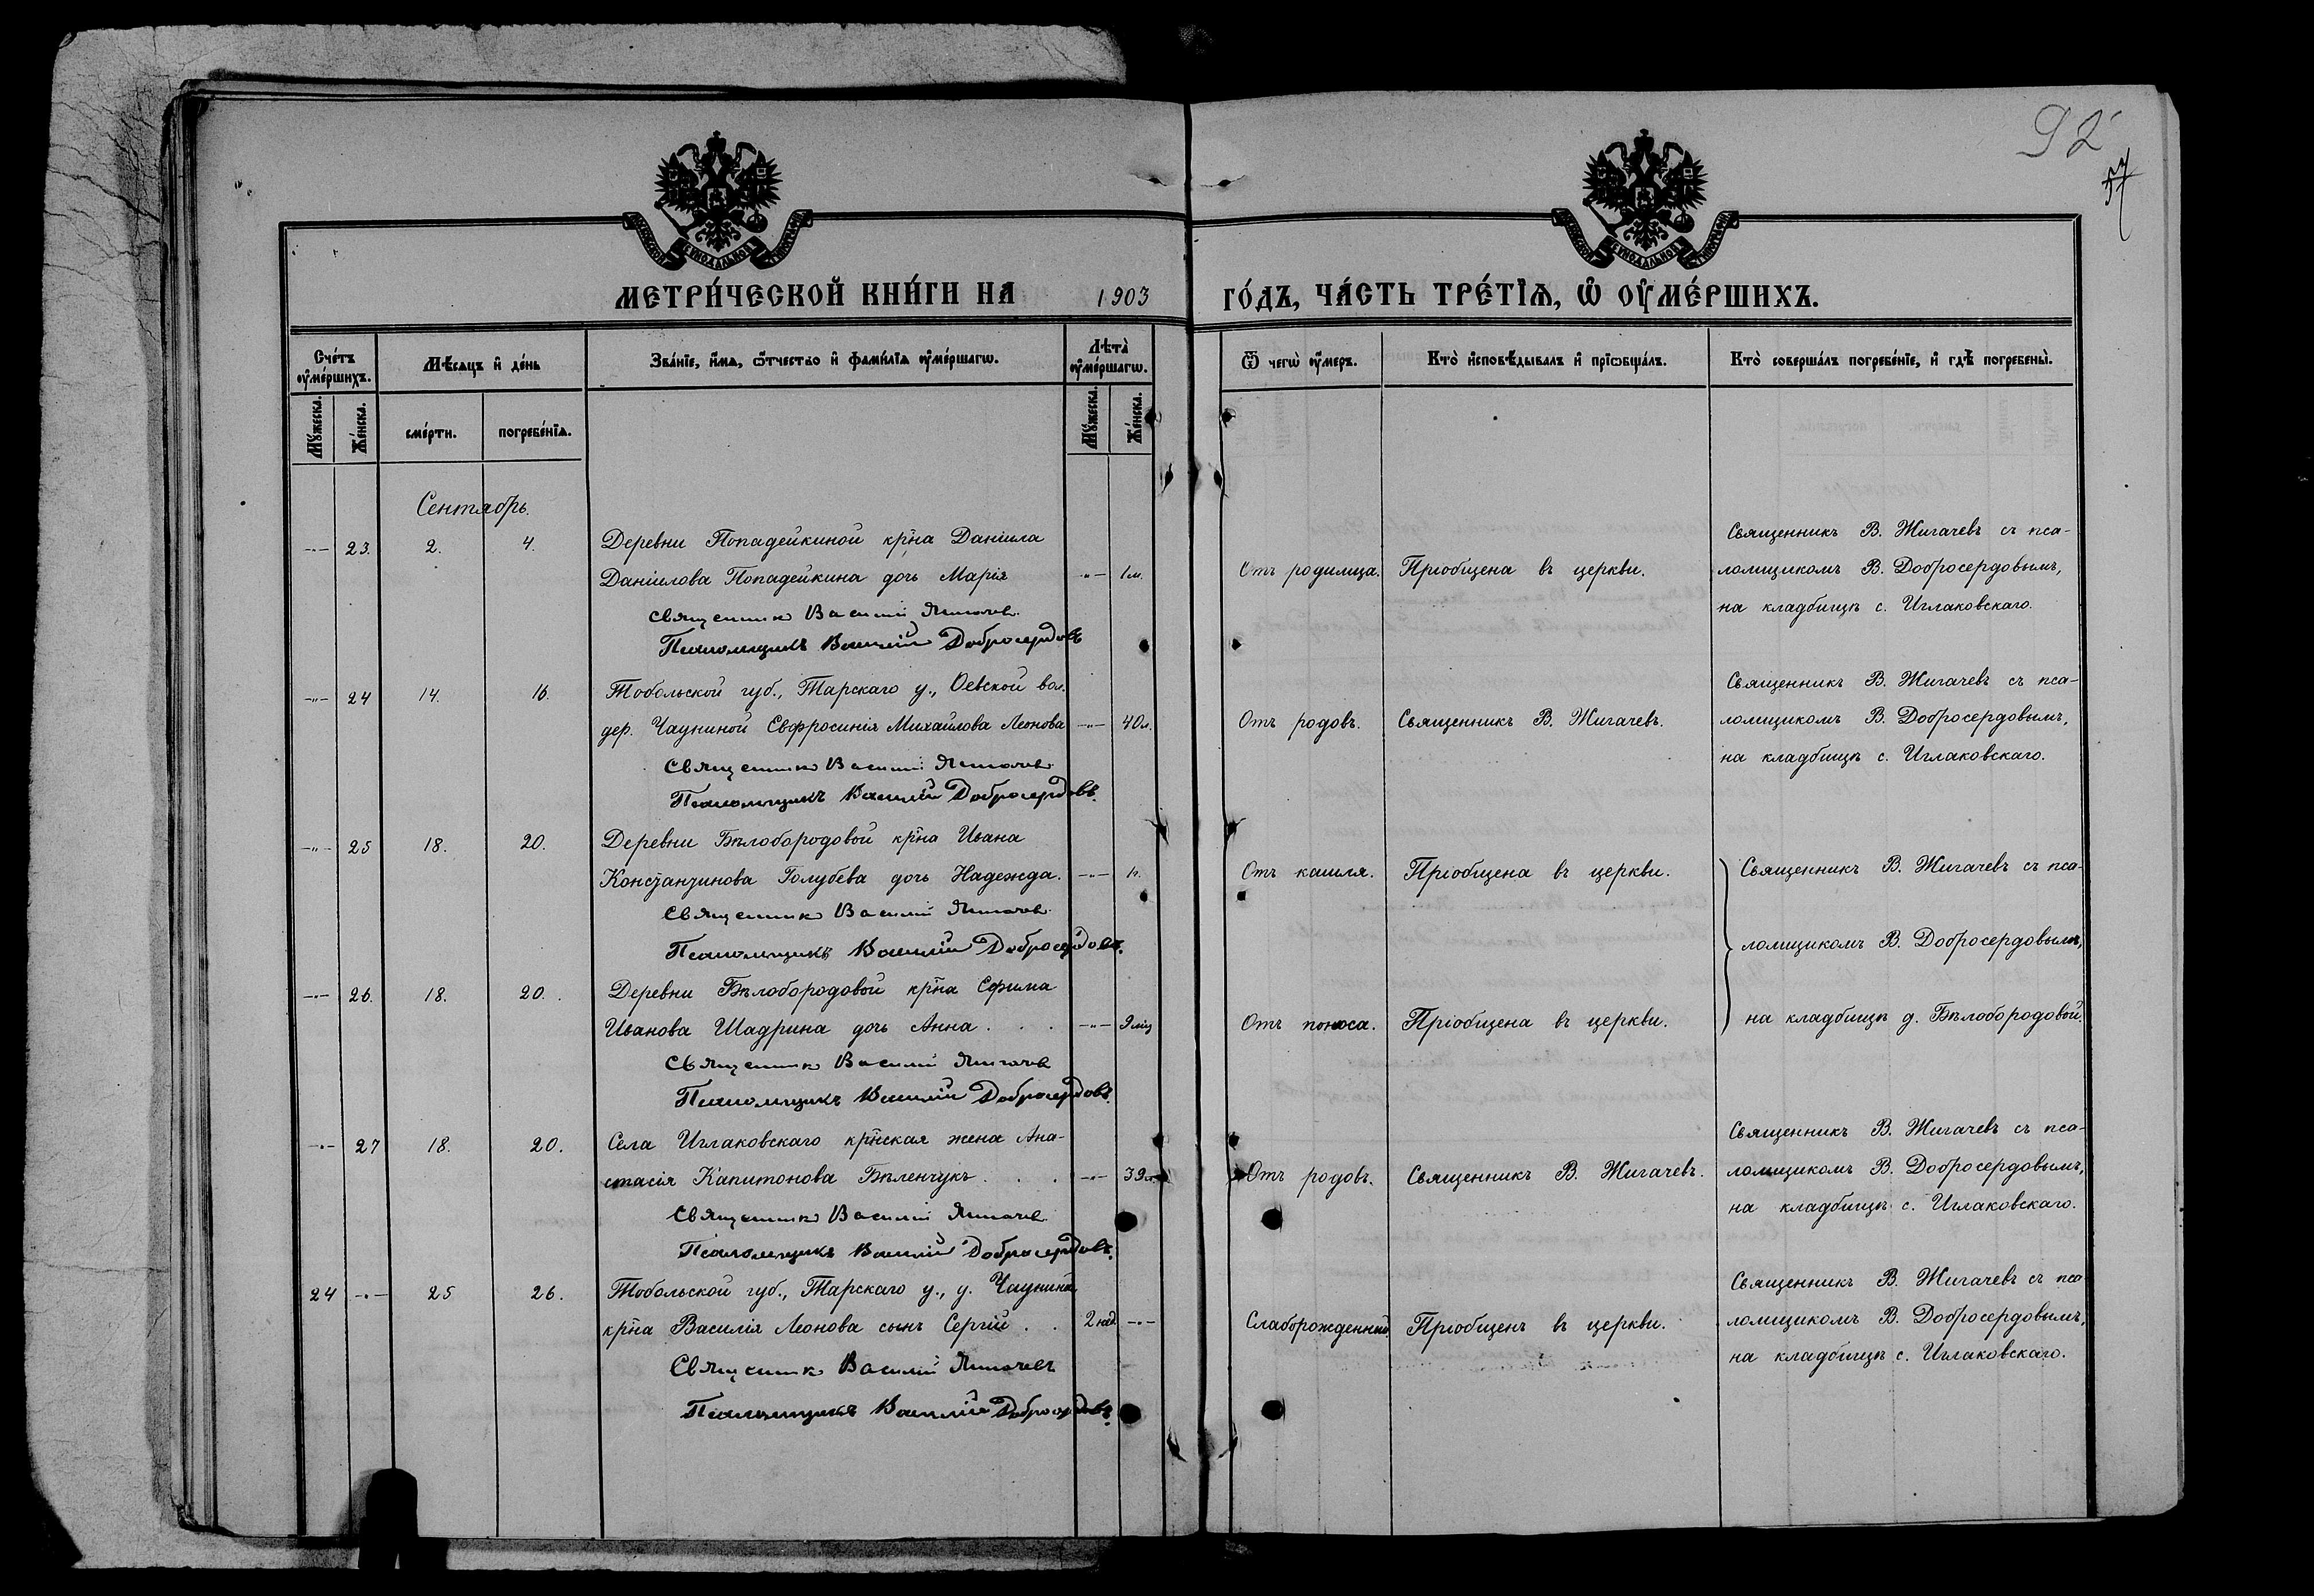 92
57
МЕТРИ́ЧЕСКОЙ КНИ́ГИ НА 1903 ГО́ДЪ, ЧА́СТЬ ТРЕ́ТІѦ, Ѡ҆ ОУ҆МЕ́РШИХЪ.
Сче́тъ оу҆ме́ршихъ.
Мѣ́сѧцъ и҆ де́нь
Зва́нїе, и҆́мѧ, ѻ҆́тчество и҆ фами́лїѧ оу҆ме́ршагѡ.
Лѣта̀ оу҆ме́ршагѡ.
Ѿ чегѡ̀ оу҆́меръ.
Кто̀ и҆сповѣ́дывалъ и҆ прїѡбща́лъ.
Кто̀ соверша́лъ погребе́нїе, и҆ гдѣ̀ погребены̀.
Мꙋ́жеска.
Же́нска.
сме́рти.
погребе́нїѧ.
Мꙋ́жеска.
Же́нска.
Сентябрь.
-"- 23. 2. 4. Деревни Попадейкиной кр̃на Даніила
Даніилова Попадейкина дочь Марія -"- 1м.
Священникъ Василій Жигачев
Псаломщикъ Василій Добросердовъ
Отъ родимца. Пріобщена въ церкви.
Священникъ В. Жигачевъ съ пса-
ломщикомъ В. Добросердовымъ,
на кладбищѣ с. Иглаковскаго.
-"- 24 14. 16. Тобольской губ., Тарскаго у., Оевской вол.
дер. Чауниной Евфросинія Михайлова Леонова -"- 40л.
Священникъ Василій Жигачев
Псаломщикъ Василій Добросердовъ.
Отъ родовъ. Священникъ В. Жигачевъ.
Священникъ В. Жигачевъ съ пса-
ломщикомъ В. Добросердовымъ,
на кладбищѣ с. Иглаковскаго.
-"- 25 18. 20. Деревни Бѣлобородовой кр̃на Ивана
Константинова Голубева дочь Надежда. -"-
Священникъ Василій Жигачев
Псаломщикъ Василій Добросердовъ.
Отъ кашля. Пріобщена въ церкви.
Священникъ В. Жигачевъ съ пса-
ломщикомъ В. Добросердовымъ,
на кладбищѣ д. Бѣлобородовой.
-"- 26. 18. 20. Деревни Бѣлобородовой кр̃на Ефима
Иванова Шадрина дочь Анна . . . -"- 9 мц
Священникъ Василій Жигачев
Псаломщикъ Василій Добросердовъ.
Отъ поноса. Пріобщена въ церкви.
-"- 27 18. 20. Села Иглаковскаго кр̃нская жена Ана-
стасія Капитонова Бѣленчукъ . . . -"- 39л.
Священникъ Василій Жигачев
Псаломщикъ Василій Добросердовъ.
Отъ родовъ. Священникъ В. Жигачевъ.
Священникъ В. Жигачевъ съ пса-
ломщикомъ В. Добросердовымъ,
на кладбищѣ с. Иглаковскаго.
24 -"- 25 26. Тобольской губ., Тарскаго у., д. Чауниной
кр̃на Василія Леонова сынъ Сергій . . 2 нед -"-
Священникъ Василій Жигачевъ
Псаломщикъ Василій Добросердовъ.
Слаборожденный Пріобщенъ въ церкви.
Священникъ В. Жигачевъ съ пса
ломщикомъ В. Добросердовымъ,
на кладбищѣ с. Иглаковскаго.